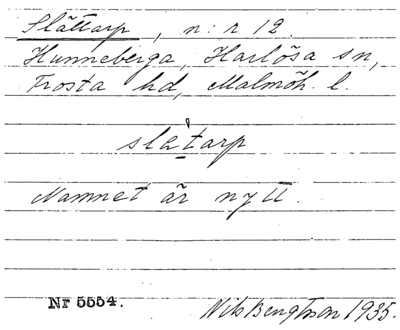 Slättarp, n:r 12.
Hunneberga, Harlösa sn,
Frosta hd, Malmöh. l.
slatarp
Namnet är nytt.
Nr 5554. Nils Bengtsson 1935.